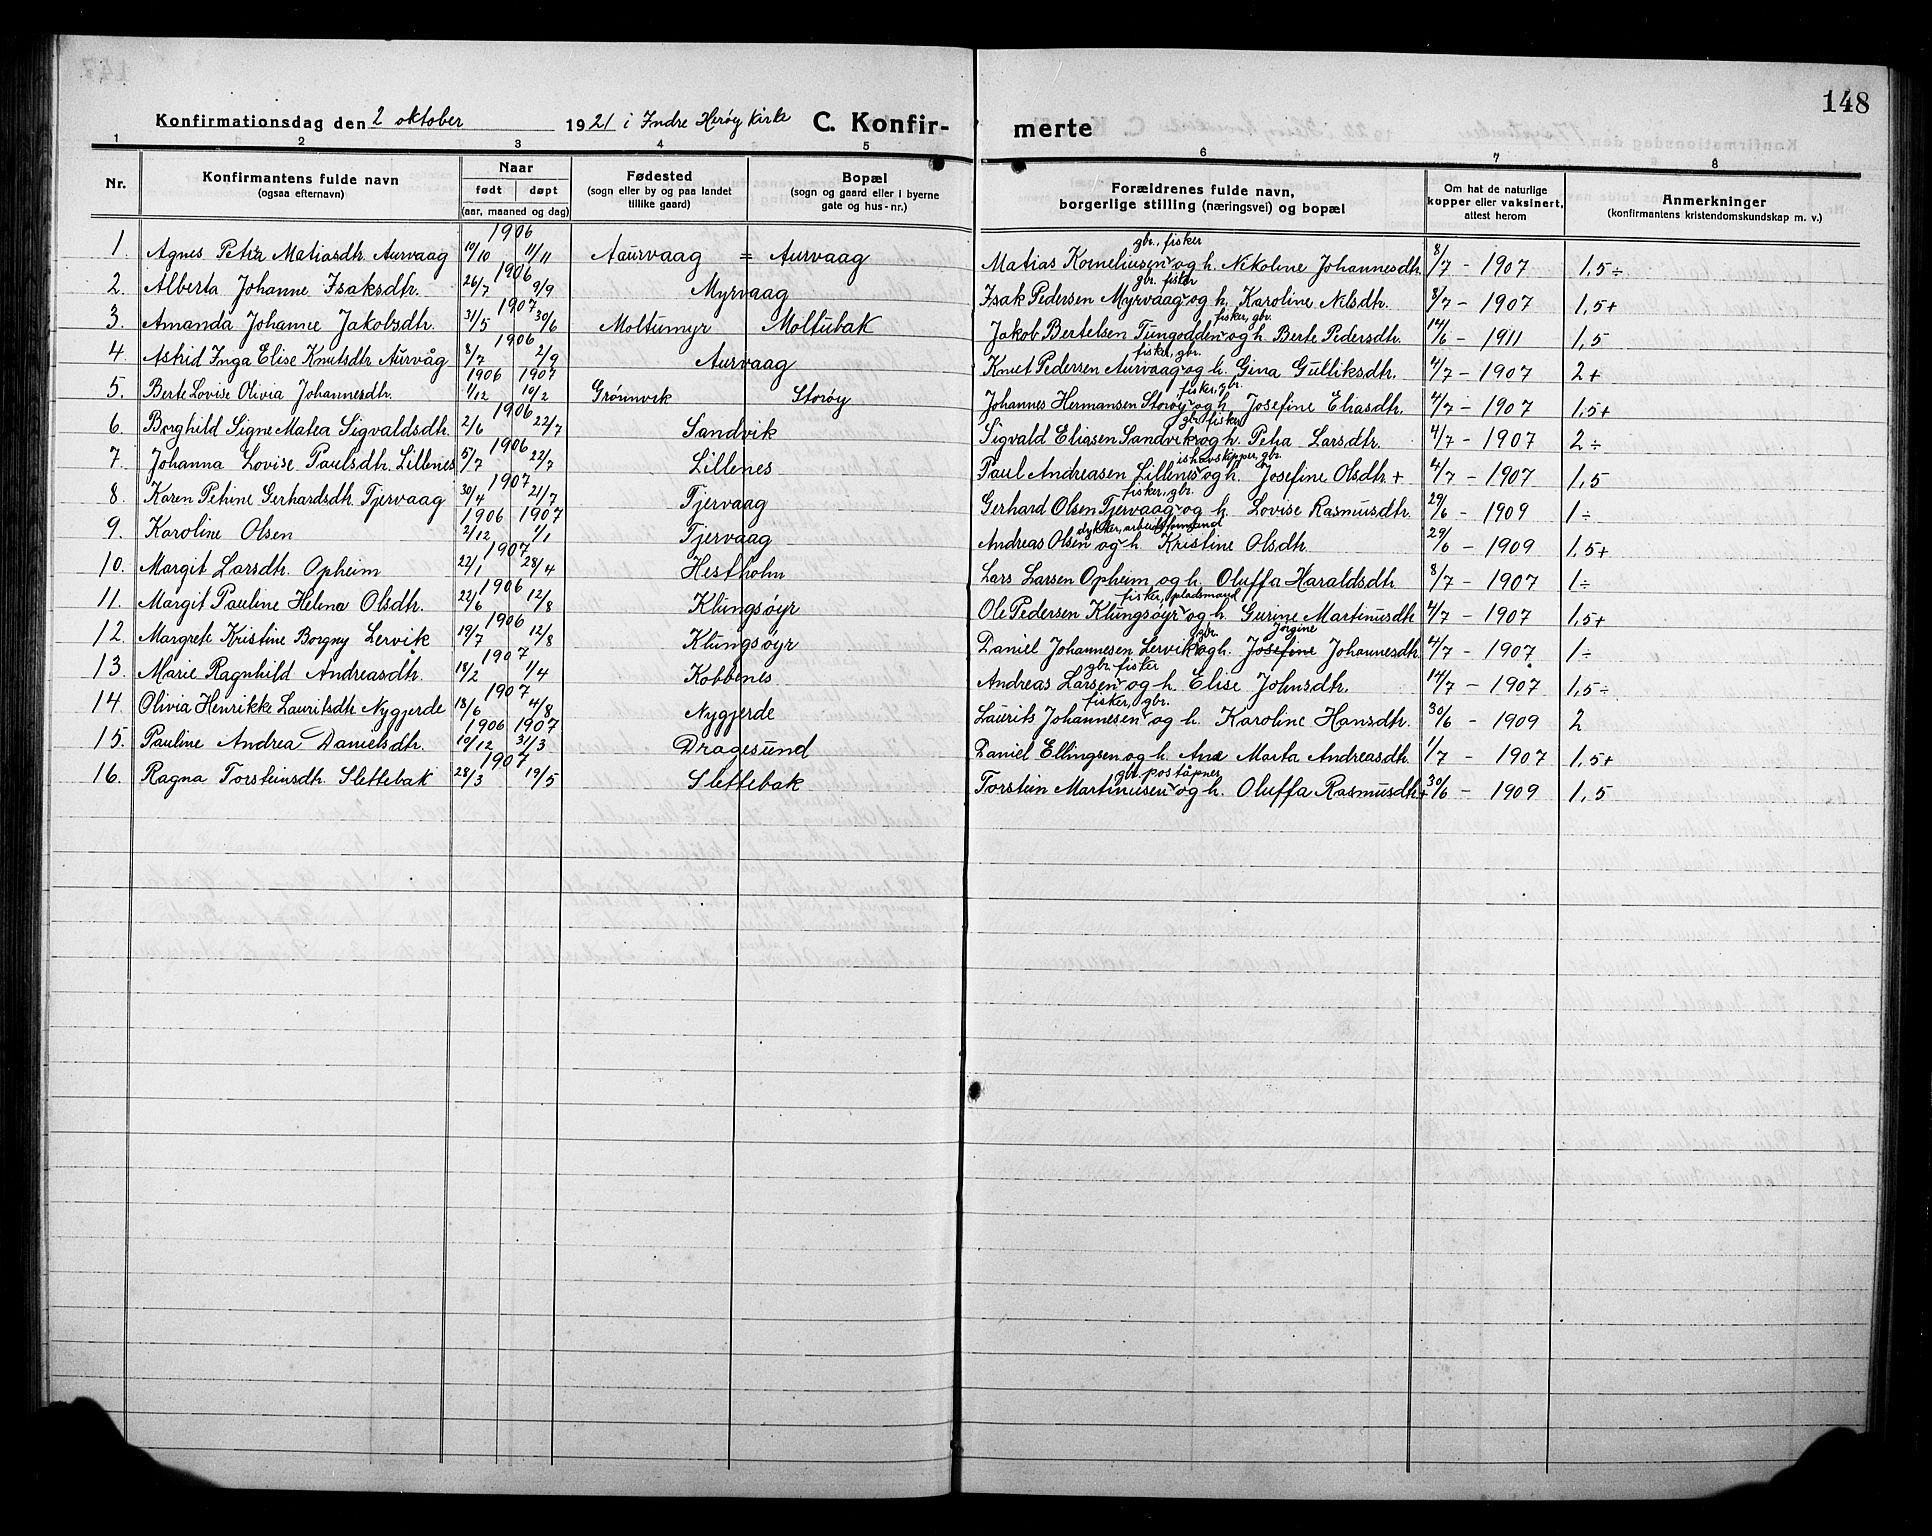 148
Konfirmationsdag den 2 oktober 1921 i Indre Herøy kirke C. Konfir- merte
1 2 3 4 5 6 7 8
Nr. Konfirmantens fulde navn (ogsaa efternavn) Naar født døpt (aar, maaned og dag) Fødested (sogn eller by og paa landet tillike gaard) Bopæl (sogn og gaard eller i byerne gate og hus-nr.) Forældrenes fulde navn, borgerlige stilling (næringsvei) og bopæl Om hat de naturlige kopper eller vaksinert, attest herom Anmerkninger (konfirmantens kristendomskundskap m. v.)
1. Agnes Petra Matiasdtr. Aurvaag 1906 10/10 11/11 Aaurvaag = Aurvaag Matias Korneliusen gbr., fisker og h. Nikoline Johannesdtr. 8/7 - 1907 1,5 ÷
2. Alberta Johanne Isaksdtr. 1906 26/7 9/9 Myrvaag Isak Pedersen Myrvaag gbr. fisker og h. Karoline Nilsdtr. 8/7 - 1907 1,5+
3. Amanda Johanne Jakobsdtr. 1907 31/5 30/6 Moltumyr Moltubak Jakob Bertelsen Tungodden fisker, gbr. og h. Berte Pedersdtr. 14/6 - 1911 1,5
4. Astrid Inga Elise Knutsdtr Aurvåg 1906 8/7 2/9 Aurvaag Knut Pedersen Aurvaag fisker, gbr. og h. Gina Gulliksdtr. 4/7 - 1907 2+
5. Berte Lovise Olivia Johannesdtr. 1906 1/12 1907 10/2 Grønnvik Storøy Johannes Hermansen Storøy fisker, gbr. og h. Josefine Eliasdtr. 4/7 - 1907 1,5+
6. Borghild Signe Matea Sigvaldsdtr. 1906 2/6 22/7 Sandvik Sigvald Eliasen Sandvik gbr. fisker og h. Petra Larsdtr. 4/7 - 1907 2 ÷
7. Johanna Lovise Paulsdtr. Lillenes 1906 5/7 22/7 Lillenes Paul Andreasen Lillenes ishavsskipper, gbr. og h. Josefine Olsdtr. + 4/7 - 1907 1,5
8. Karen Petrine Gerhardsdtr. Tjervaag 1907 30/4 21/7 Tjervaag Gerhard Olsen Tjervaag fisker, gbr. og h. Lovise Rasmusdtr. 29/6 - 1909 1 ÷
9. Karoline Olsen 1906 2/12 1907 1/1 Tjervaag Andreas Olsen dykker, arbeidsformand og h. Kristine Olsdtr. 29/6 - 1909 1,5+
10. Margit Larsdtr. Opheim 1907 22/1 28/4 Hestholm Lars Larsen Opheim og h. Oluffa Haraldsdtr. 8/7 - 1907 1 ÷
11. Margit Pauline Helene Olsdtr. 1906 22/6 12/8 Klungsøyr Ole Pedersen Klungsøyr fisker, pladsmand og h. Gurine Martinusdtr 4/7 - 1907 1,5+
12. Margrete Kristine Borgny Lervik 1906 19/7 12/8 Klungsøyr Daniel Johannesen Lervik gbr. og h. Josefine Jørgine Johannesdtr. 4/7 - 1907 1 ÷
13. Marie Ragnhild Andreasdtr. 1907 18/2 1/4 Kobbenes Andreas Larsen gbr. fisker og h. Elise Johnsdtr. 14/7 - 1907 1,5 ÷
14. Olivia Henrikke Lauritsdtr Nygjerde 1907 18/6 4/8 Nygjerde Laurits Johannesen fisker, gbr. og h. Karoline Hansdtr. 30/6 - 1909 2
15. Pauline Andrea Danielsdtr. 1906 19/12 1907 31/3 Dragesund Daniel Ellingsen og h. Ane Marta Andreasdtr. 1/7 - 1907 1,5+
16. Ragna Torsteinsdtr. Slettebak 1907 28/3 19/5 Slettebak Torstein Martinusen gbr. poståpner og h. Oluffa Rasmusdtr + 30/6 - 1909 1,5